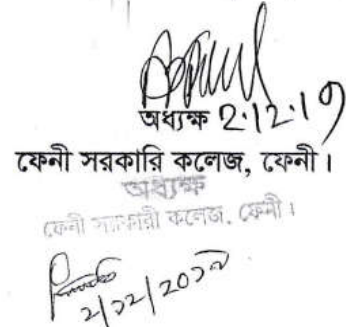 অধ্যক্ষ 2.12.19
ফেনী সরকারি কলেজ, ফেনী।
অধ্যক্ষ
ফেনী সরকারী কলেজ, ফেনী।